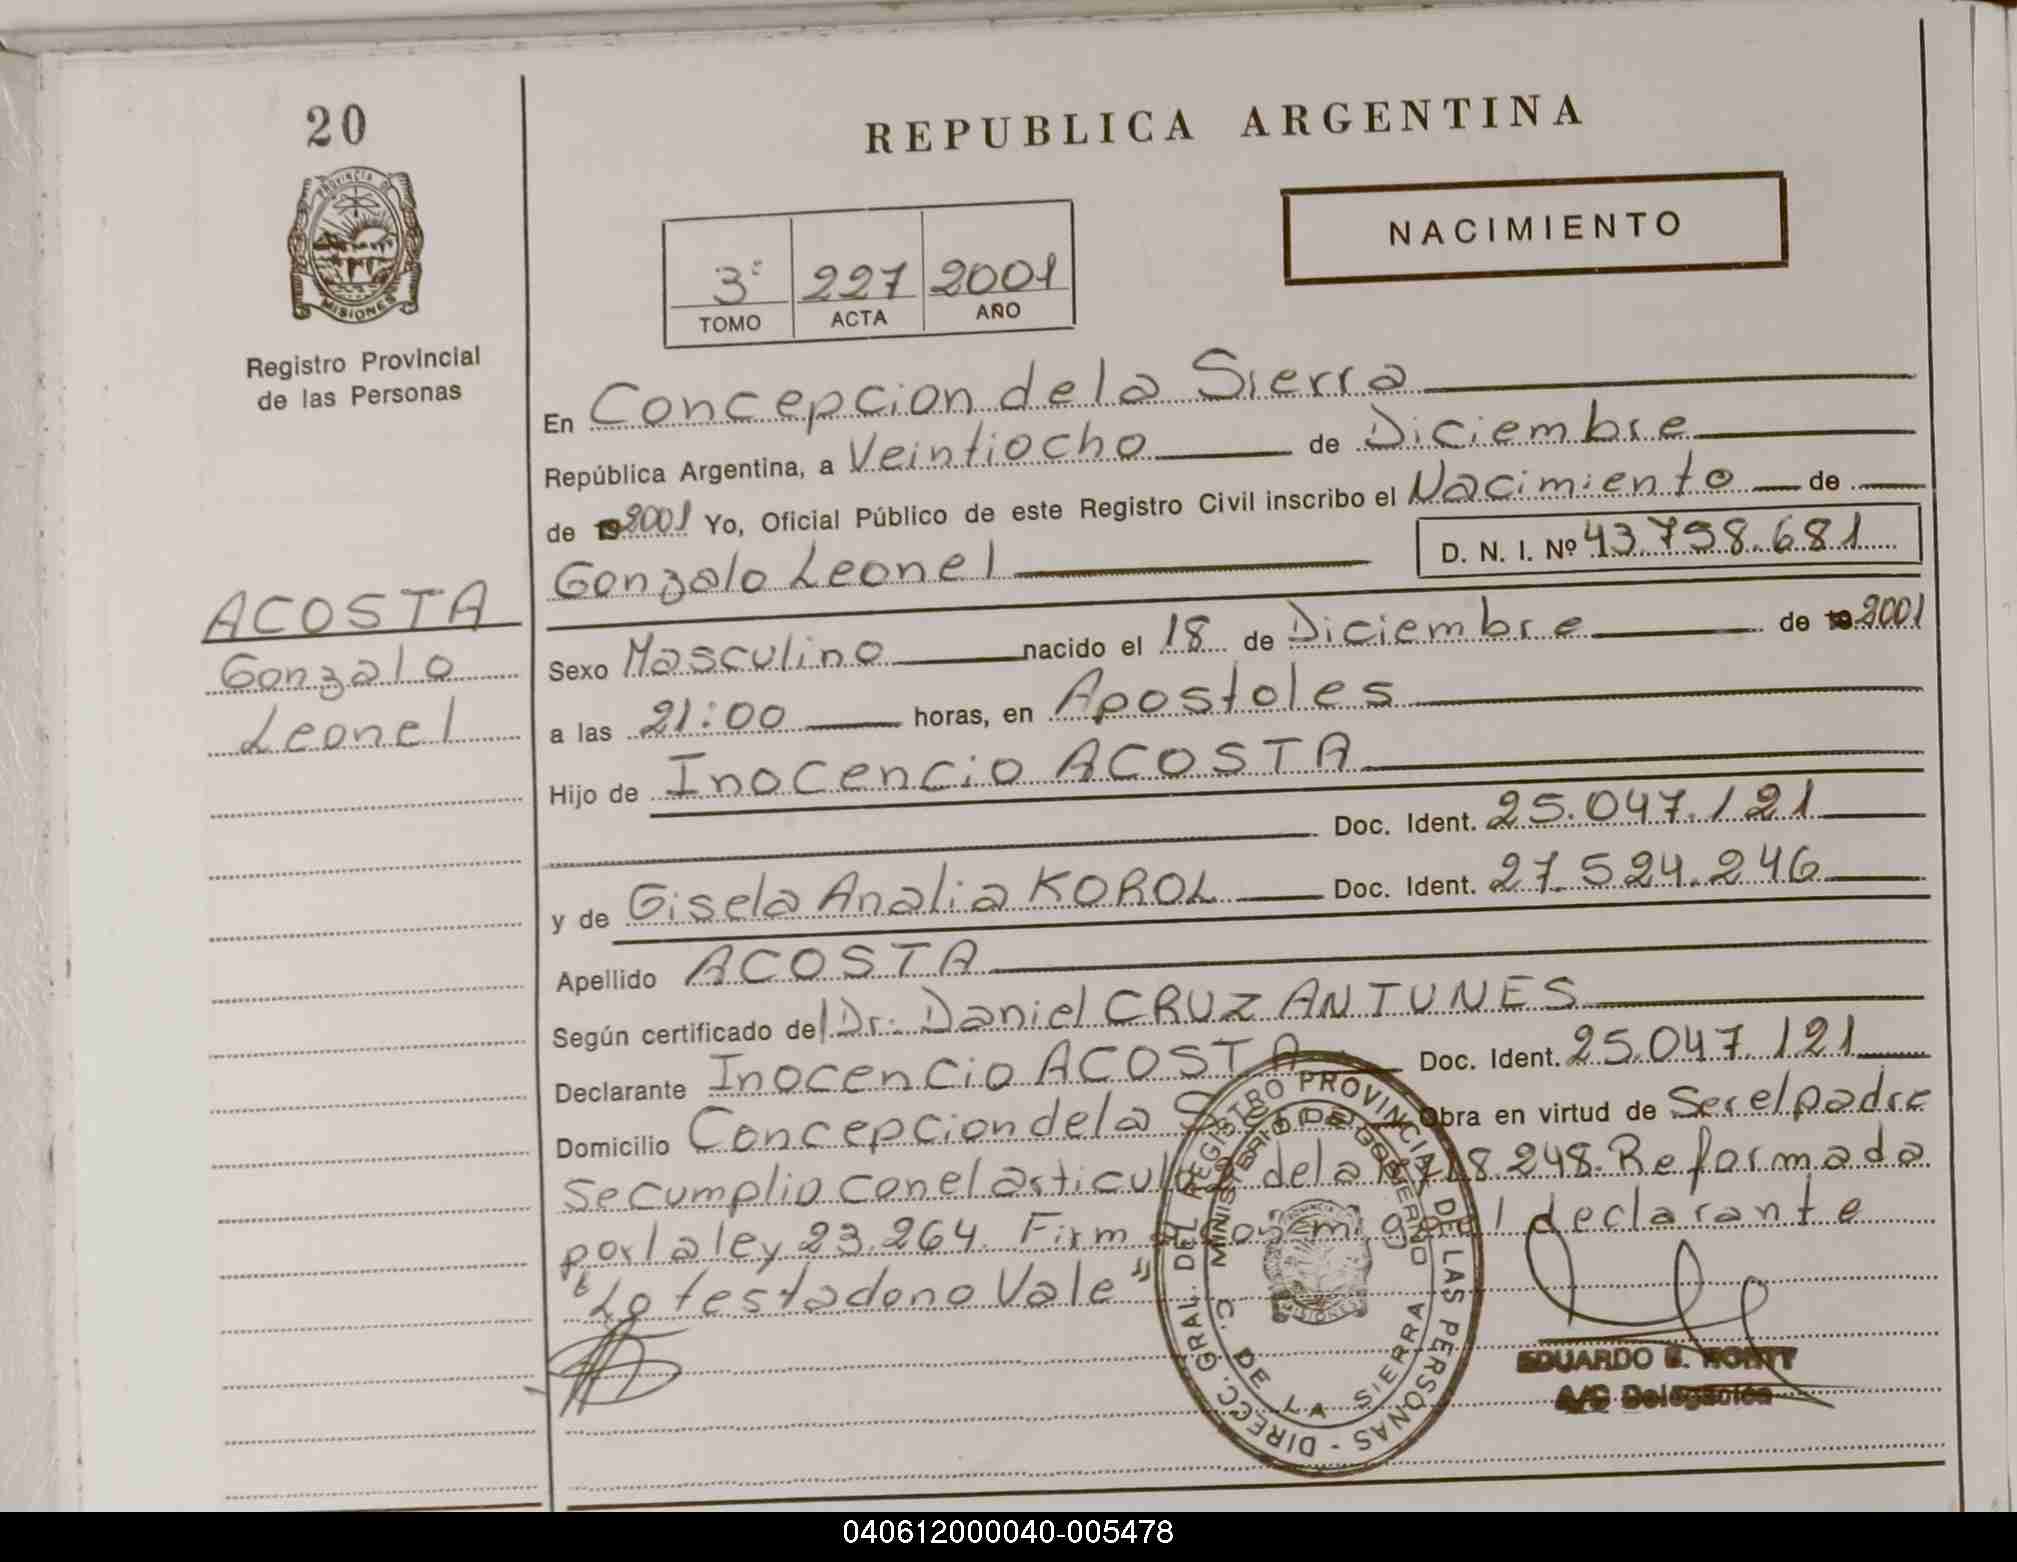 20
PROVINCIA DE
MISIONES
Registro Provincial
de las Personas
ACOSTA
Gonzalo
Leonel
REPUBLICA ARGENTINA
NACIMIENTO
3º 227 2001
TOMO ACTA AÑO
En Concepcion de la Sierra
República Argentina, a Veintiocho de Diciembre
de 2001 Yo, Oficial Público de este Registro Civil inscribo el Nacimiento de
Gonzalo Leonel D. N. I. Nº 43.798.681
Sexo Masculino nacido el 18 de Diciembre de 2001
a las 21:00 horas, en Apostoles
Hijo de Inocencio ACOSTA
Doc. Ident. 25.047.121
y de Gisela Analia KOROL Doc. Ident. 27.524.246
Apellido ACOSTA
Según certificado del Dr. Daniel CRUZ ANTUNES
Declarante Inocencio ACOSTA Doc. Ident. 25.047.121
Domicilio Concepcion de la Obra en virtud de Ser el padre
Se cumplio con el articulo de la 18.248. Reformada
por la ley 23.264. Firma el declarante
"Lo testado no Vale"
DIRECC. GRAL. DEL REGISTRO PROVINCIAL DE LAS PERSONAS -
MINISTERIO DE GOBIERNO
C. DE LA SIERRA
MISIONES
EDUARDO
A/C Delegación
040612000040-005478